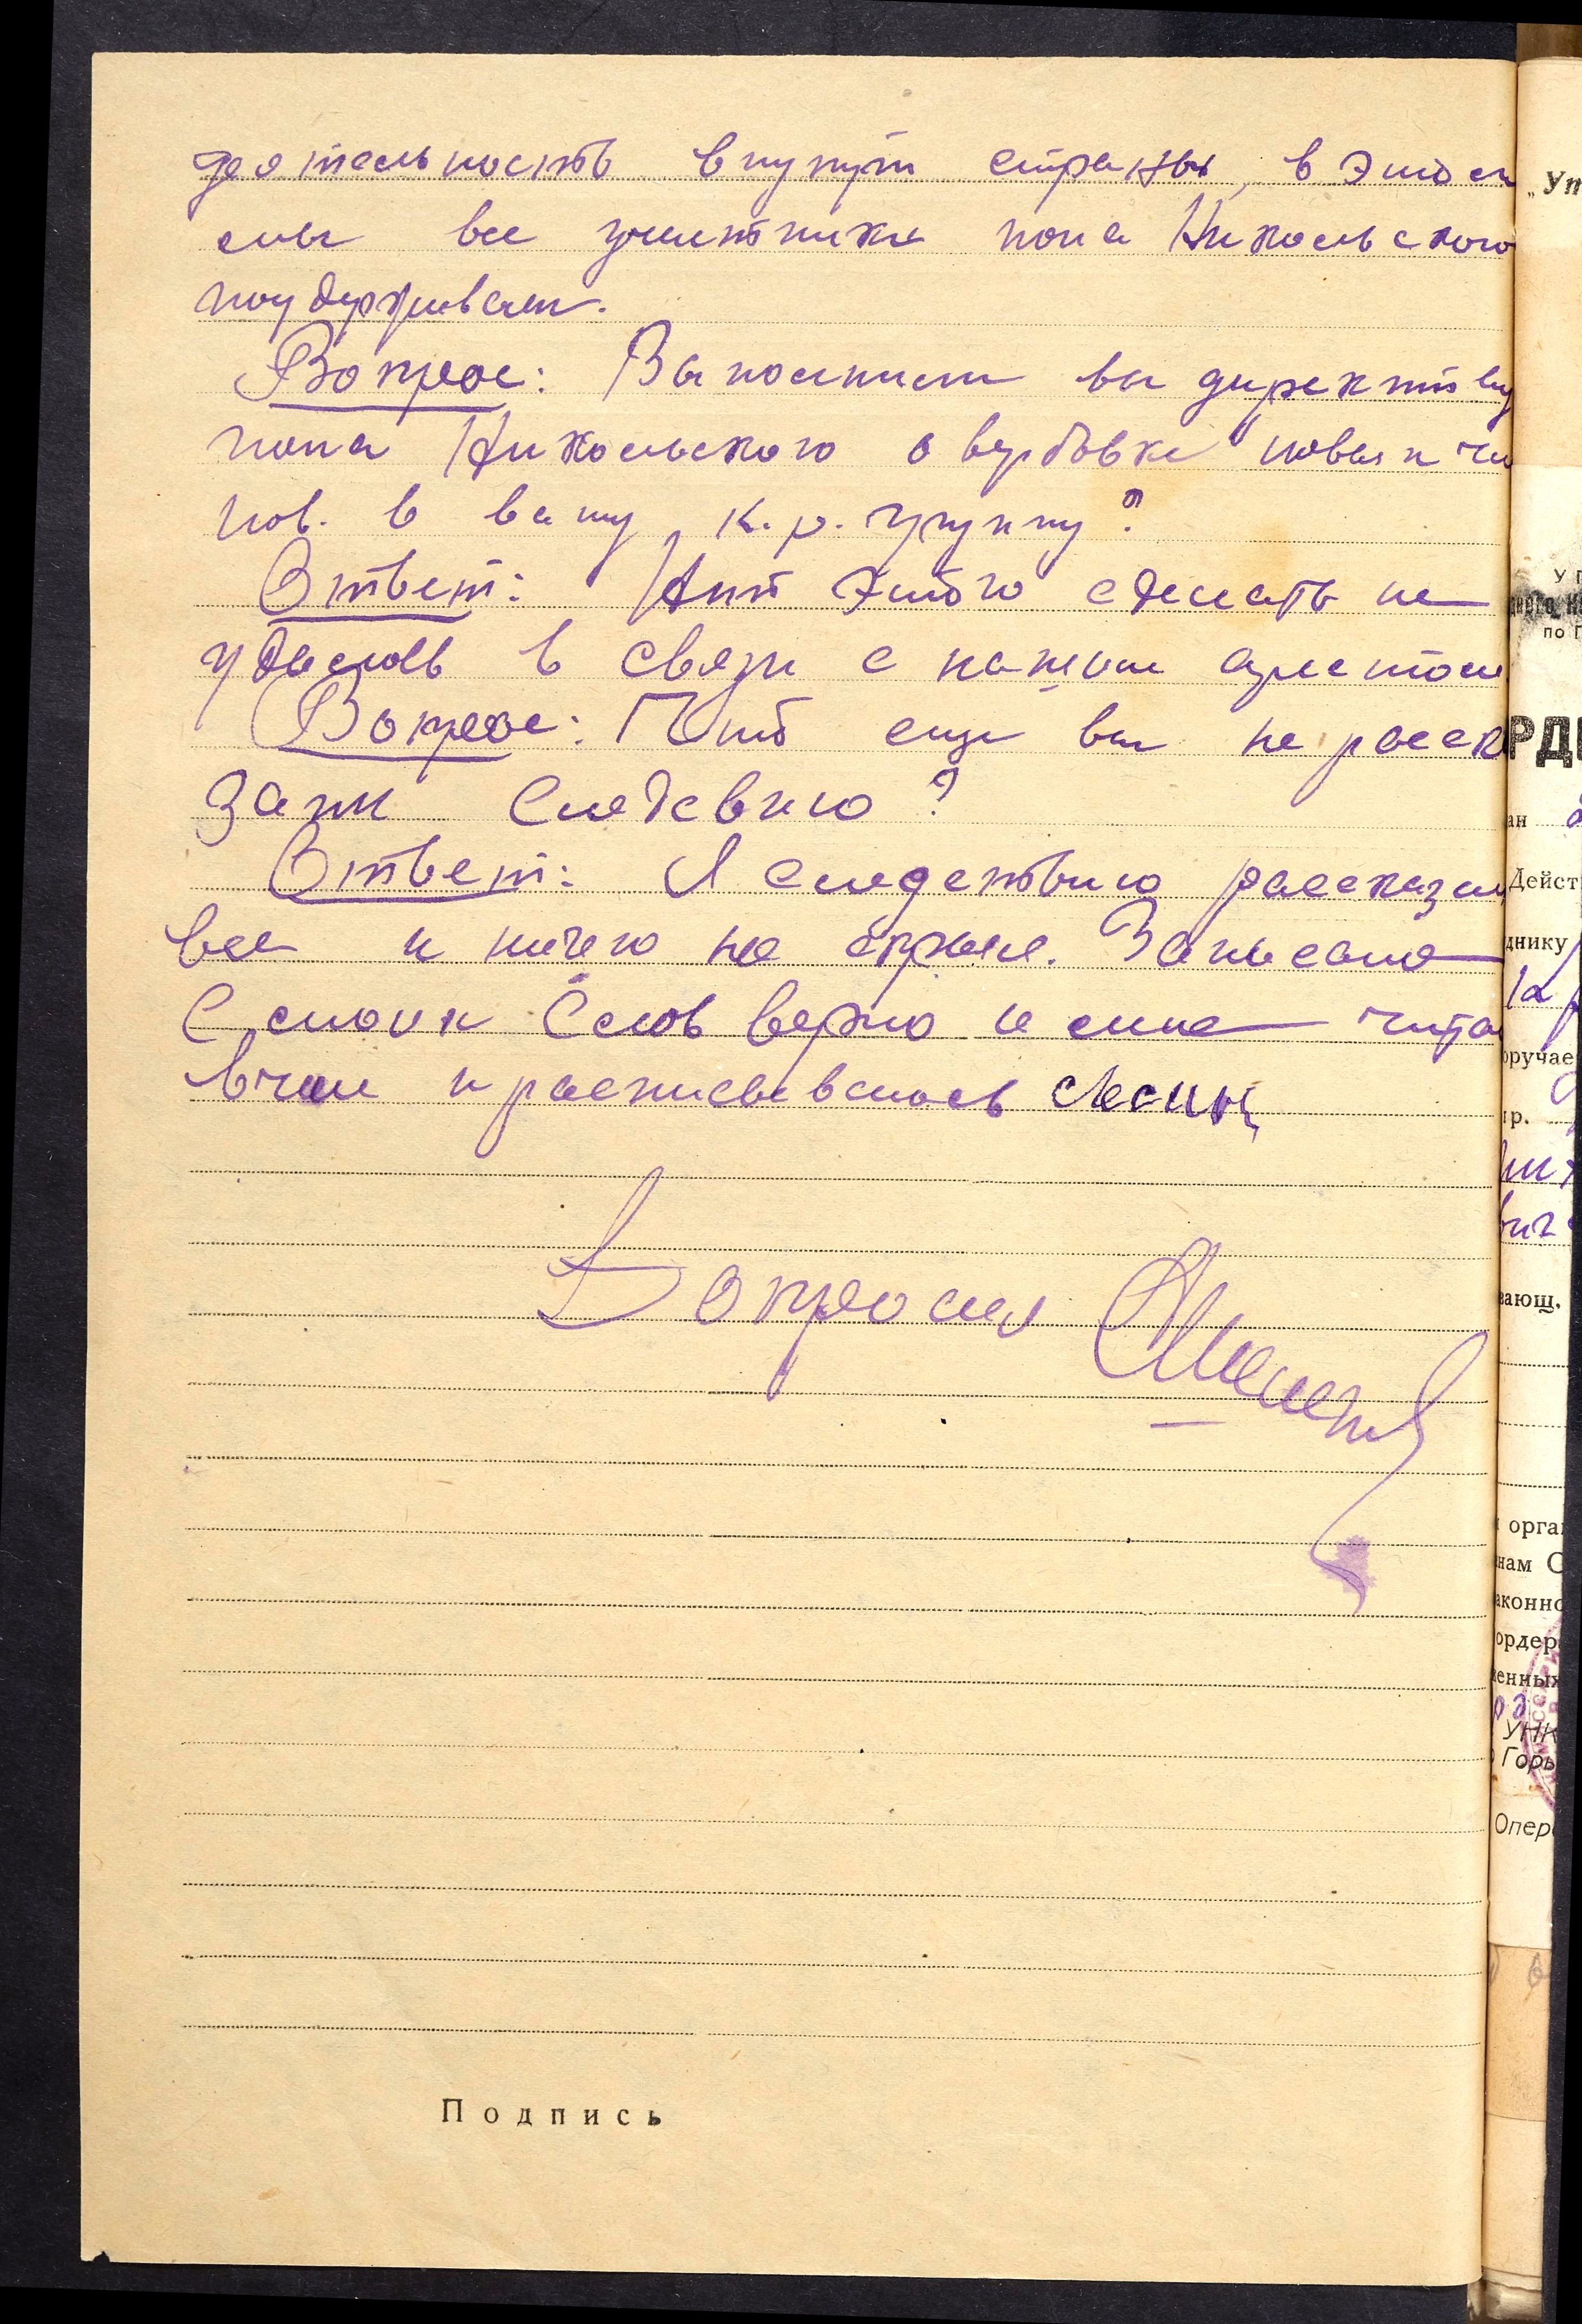 деятельность внутри страны, в этом
мы все участники попа Никольского
поддерживали.
Вопрос: Выполнили вы директиву
попа Никольского о вербовке новых чле
нов. в вашу к.р. группу?
Ответ: Нет этого сделать не
удалось в связи с нашим арестом
Вопрос: Что еще вы не расск
зали Следствию?
Ответ: Я следствию рассказал
все и ничего не скрыл. Записано
С моих слов верно и мне чита
в чем и расписываюсь
Допросил
Подпись
„Уп
УП
по Г
РДЕ
ан
Дейст
днику
оручае
гр.
вающ.
орга
нам С
аконно
ордер
енных
УНК
Горь
Опер